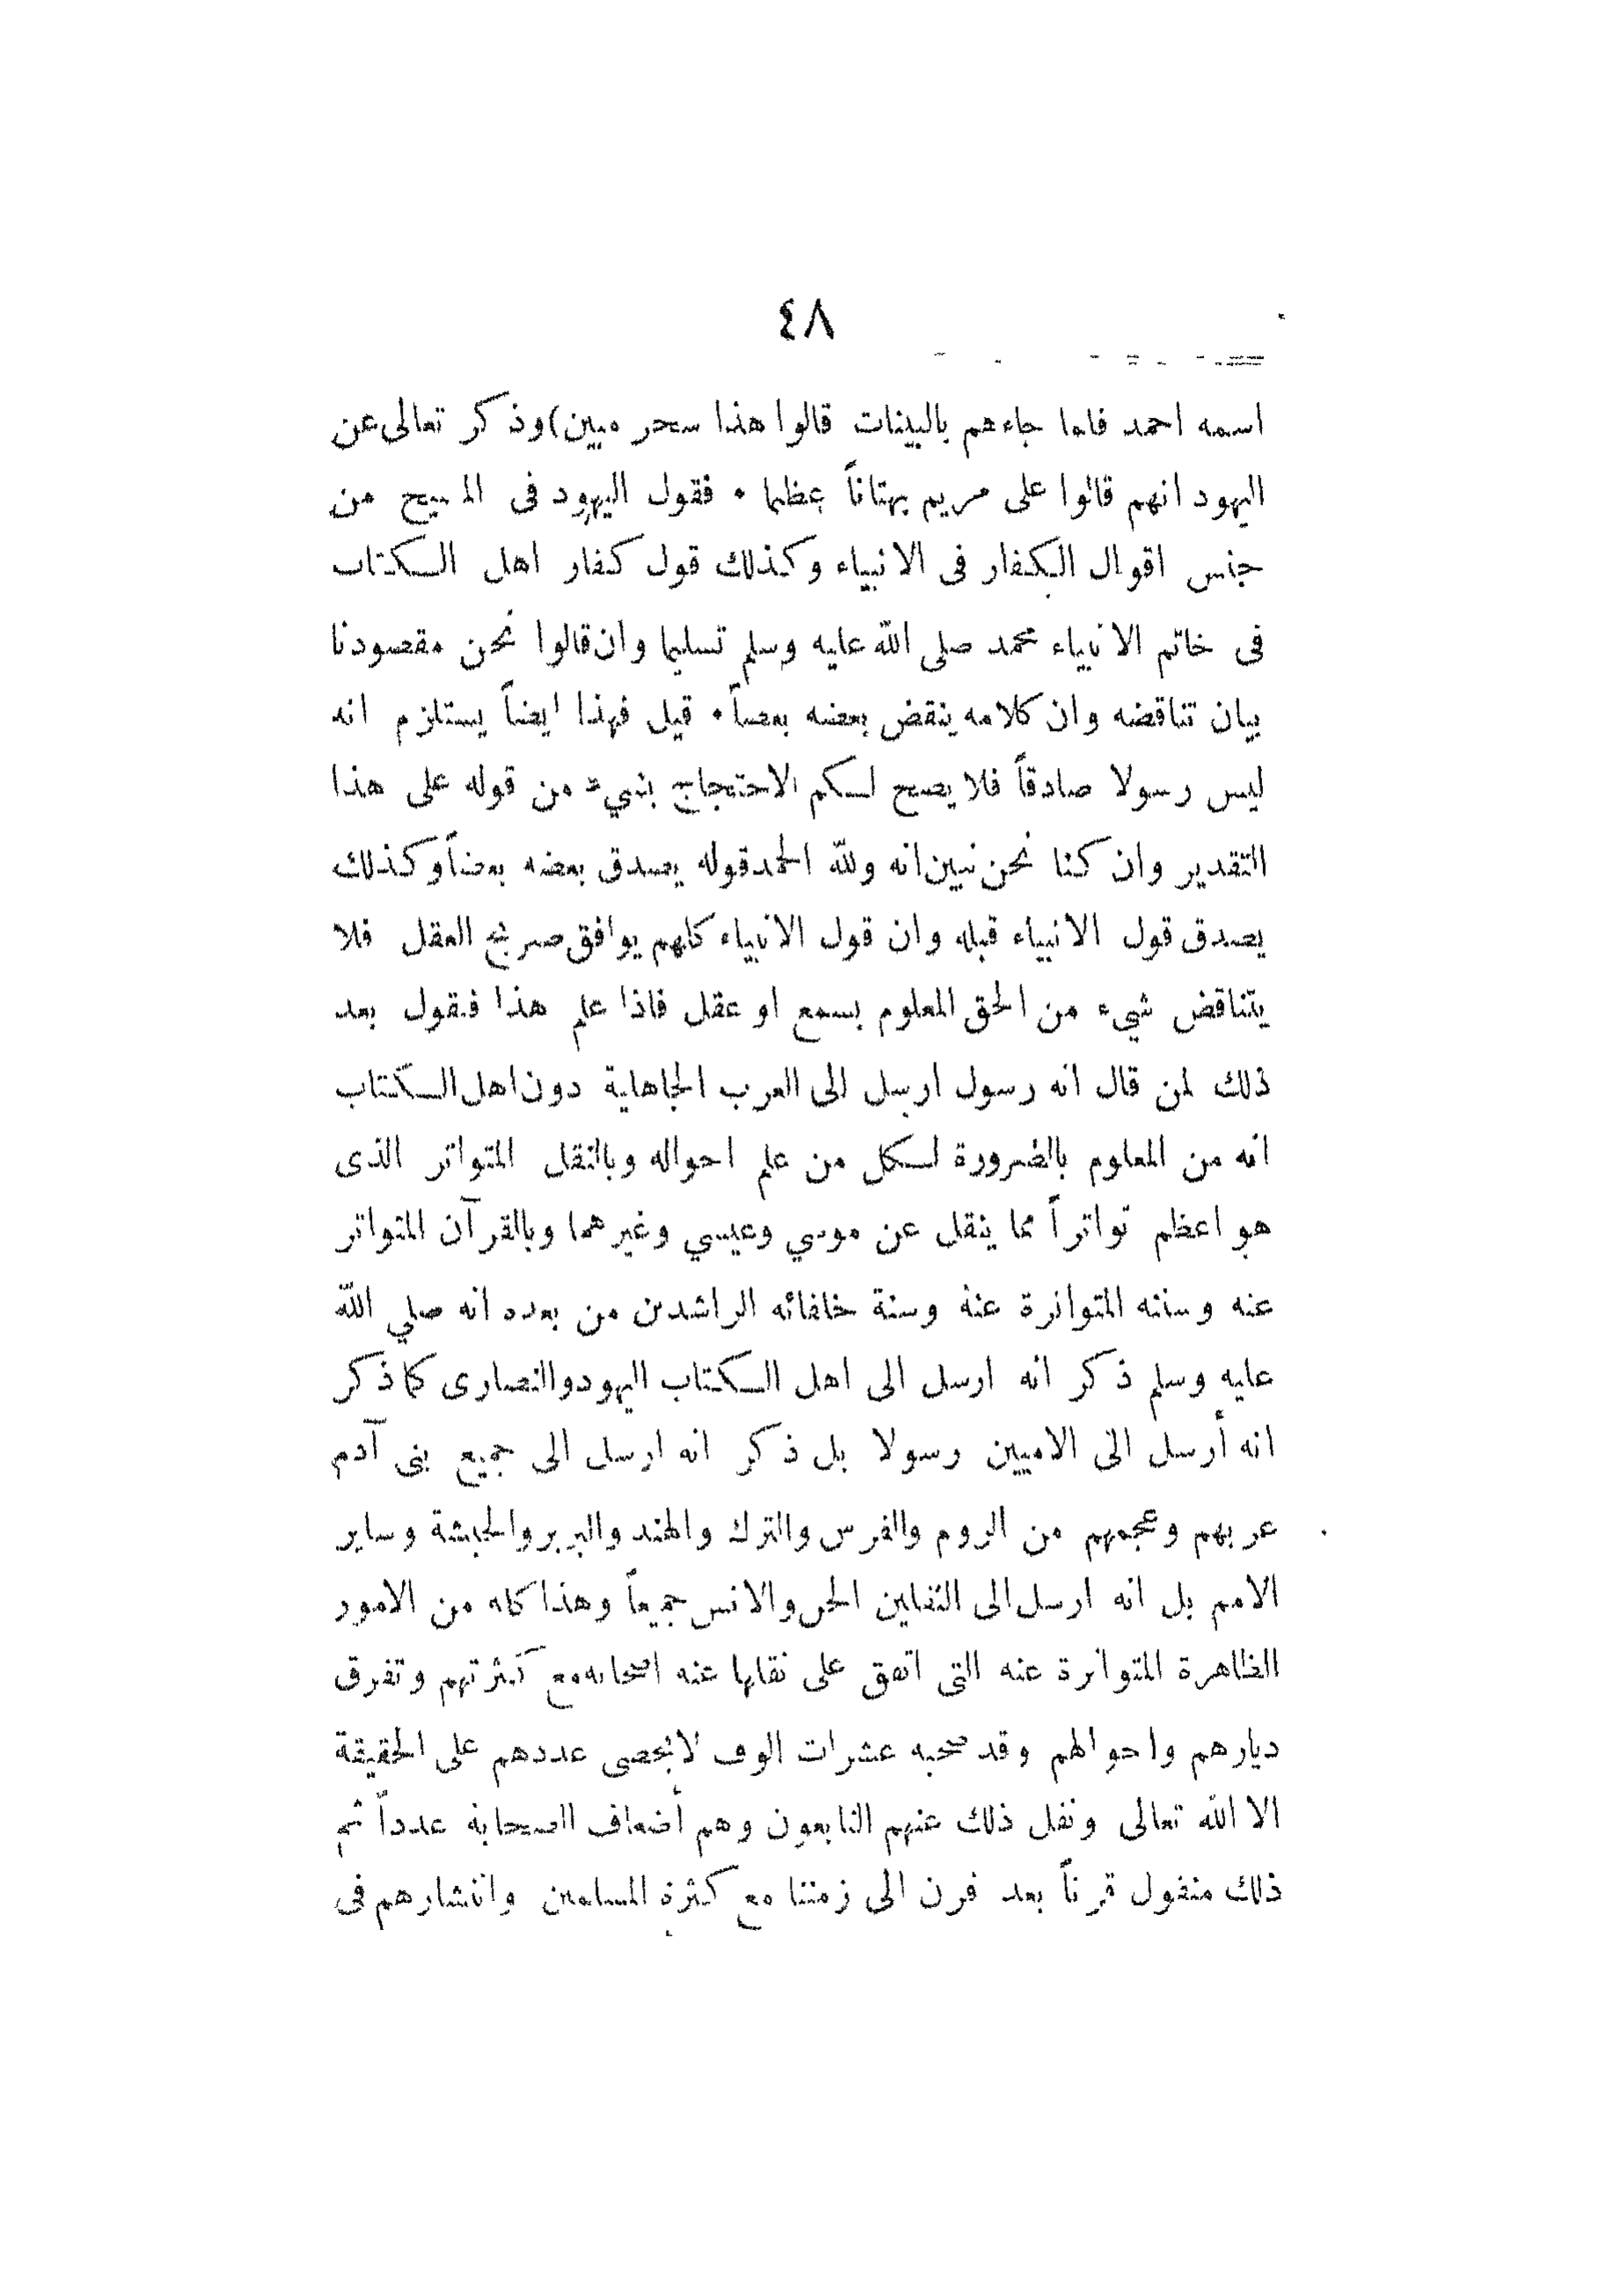 ٤٨
اسمه احمد فلما جاءهم بالبينات قالوا هذا سحر مبين) وذكر تعالى عن
اليهود انهم قالوا على مريم بهتاناً عظيما . فقول اليهود فى المسيح من
جنس اقوال الكفار فى الانبياء وكذلك قول كفار اهل الكتاب
فى خاتم الانبياء محمد صلى الله عليه وسلم تسليما وان قالوا نحن مقصودنا
بيان تناقضه وان كلامه ينقض بعضه بعضاً . قيل فهذا ايضاً يستلزم انه
ليس رسولا صادقاً فلا يصح لكم الاحتجاج بشيء من قوله على هذا
التقدير وان كنا نحن نبين انه ولله الحمد قوله يصدق بعضه بعضاً وكذلك
يصدق قول الانبياء قبله وان قول الانبياء كلهم يوافق صريح العقل فلا
يتناقض شيء من الحق المعلوم بسمع او عقل فاذا علم هذا فنقول بعد
ذلك لمن قال انه رسول ارسل الى العرب الجاهلية دون اهل الكتاب
انه من المعلوم بالضرورة لكل من علم احواله وبالنقل المتواتر الذى
هو اعظم تواتراً مما ينقل عن موسي وعيسي وغيرهما وبالقرآن المتواتر
عنه وسنته المتواترة عنه وسنة خلفائه الراشدين من بعده انه صلي الله
عليه وسلم ذكر انه ارسل الى اهل الكتاب اليهود والنصارى كما ذكر
انه أرسل الى الاميين رسولا بل ذكر انه ارسل الى جميع بنى آدم
عربهم وعجمهم من الروم والفرس والترك والهند والبربر والحبشة وساير
الامم بل انه ارسل الى الثقلين الجن والانس جميعاً وهذا كله من الامور
الظاهرة المتواترة عنه التى اتفق على نقلها عنه اصحابه مع كثرتهم وتفرق
ديارهم واحوالهم وقد صحبه عشرات الوف لا يحصى عددهم على الحقيقة
الا الله تعالى ونقل ذلك عنهم التابعون وهم أضعاف الصحابة عدداً ثم
ذلك منقول قرناً بعد قرن الى زمننا مع كثرة المسلمين وانتشارهم فى